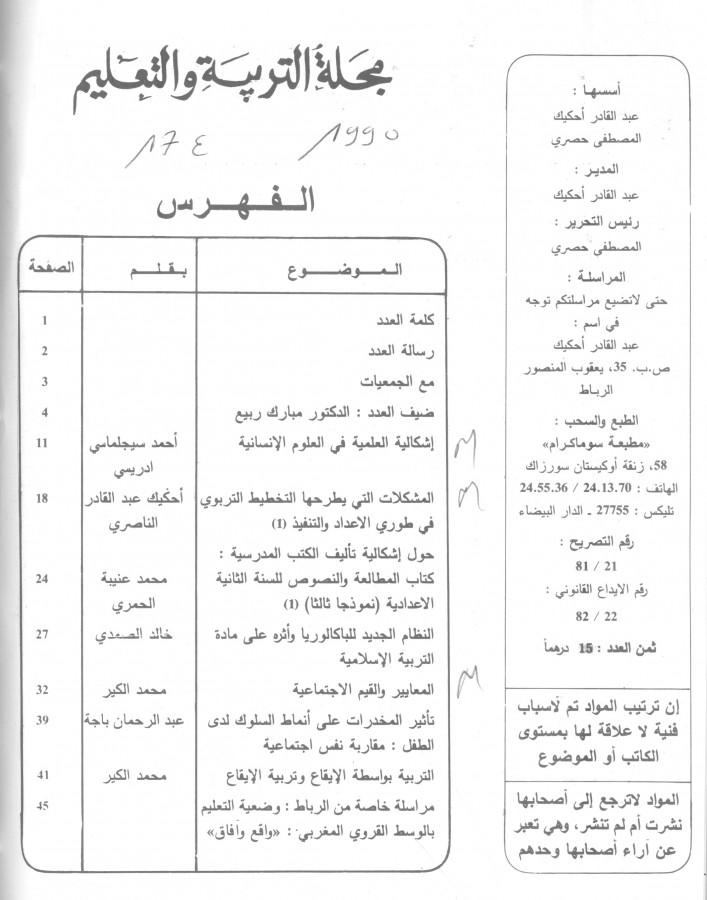 مجلة التربية والتعليم
17 ع 1990
الفهرس
الموضوع بقلم الصفحة
كلمة العدد 1
رسالة العدد 2
مع الجمعيات 3
ضيف العدد : الدكتور مبارك ربيع 4
إشكالية العلمية في العلوم الإنسانية أحمد سيجلماسي 11
ادريسي
المشكلات التي يطرحها التخطيط التربوي أحكيك عبد القادر 18
في طوري الاعداد والتنفيذ (1) الناصري
حول إشكالية تأليف الكتب المدرسية :
كتاب المطالعة والنصوص للسنة الثانية محمد عنيبة 24
الاعدادية (نموذجا ثالثا) (1) الحمري
النظام الجديد للباكالوريا وأثره على مادة خالد الصمدي 27
التربية الإسلامية
المعايير والقيم الاجتماعية محمد الكير 32
تأثير المخدرات على أنماط السلوك لدى عبد الرحمان باجة 39
الطفل : مقاربة نفس اجتماعية
التربية بواسطة الإيقاع وتربية الإيقاع محمد الكير 41
مراسلة خاصة من الرباط : وضعية التعليم 45
بالوسط القروي المغربي : «واقع وآفاق»
أسسها :
عبد القادر أحكيك
المصطفى حصري
المدير :
عبد القادر أحكيك
رئيس التحرير :
المصطفى حصري
المراسلة :
حتى لاتضيع مراسلتكم توجه
في اسم :
عبد القادر أحكيك
ص.ب. 35، يعقوب المنصور
الرباط
الطبع والسحب :
«مطبعة سوماكرام»
58، زنقة أوكيستان سورزاك
الهاتف : 24.13.70 / 24.55.36
تليكس : 27755 ـ الدار البيضاء
رقم التصريح :
21 / 81
رقم الايداع القانوني :
22 / 82
ثمن العدد : 15 درهماً
إن ترتيب المواد تم لأسباب
فنية لا علاقة لها بمستوى
الكاتب أو الموضوع
المواد لاترجع إلى أصحابها
نشرت أم لم تنشر، وهي تعبر
عن آراء أصحابها وحدهم